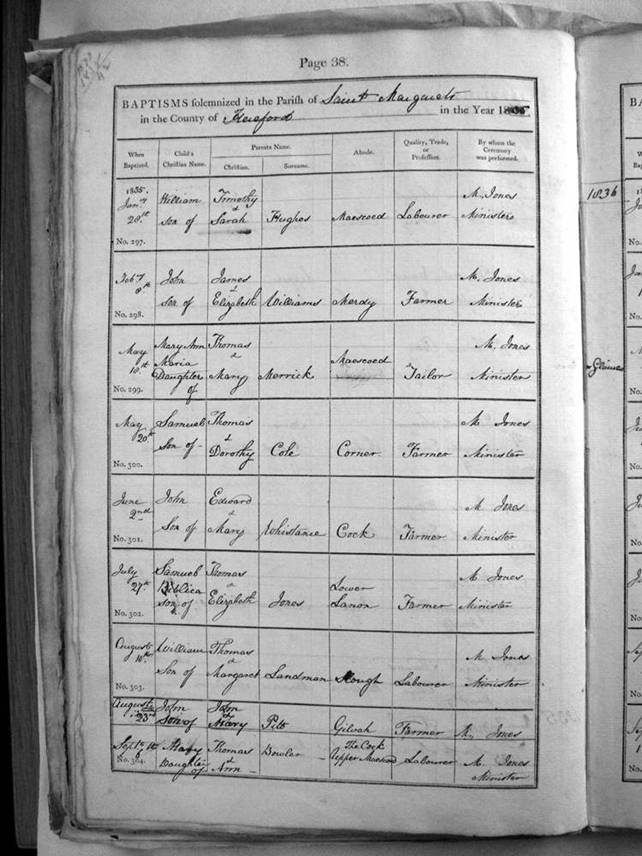 Page 38.
BAPTISMS solemnized in the Parish of Saint Margarets
in the County of Hereford in the Year 1835
When Baptized. Child's Christian Name. Parents Name. Christian. Surname. Abode. Quality, Trade, or Profession. By whom the Ceremony was performed.
1835. Jany 28th William son of Timothy & Sarah Hughes Maescoed Labourer M. Jones Minister
No. 297.
Feby 8th John son of James & Elizabeth Williams Merdy Farmer M. Jones Minister
No. 298.
May 10th Mary Ann Maria Daughter of Thomas & Mary Merrick Maescoed Tailor M. Jones Minister
No. 299.
May 20th Samuel Son of Thomas & Dorothy Cole Corner Farmer M Jones Minister
No. 300.
June 2nd John Son of Edward & Mary Whistance Cock Farmer M Jones Minister
No. 301.
July 27th Samuel son of Thomas & Elizabeth Jones Lower Lanon Farmer M Jones Minister
No. 302.
August 16th William Son of Thomas & Margaret Landman Slough Labourer M Jones Minister
No. 303.
August 23rd John Son of John & Mary Pitt Gilvah Farmer M, Jones
Septr Mary Daughter of Thomas & Ann Bowler The Cock Upper Maescoed Labourer M. Jones Minister
No. 304.
1836